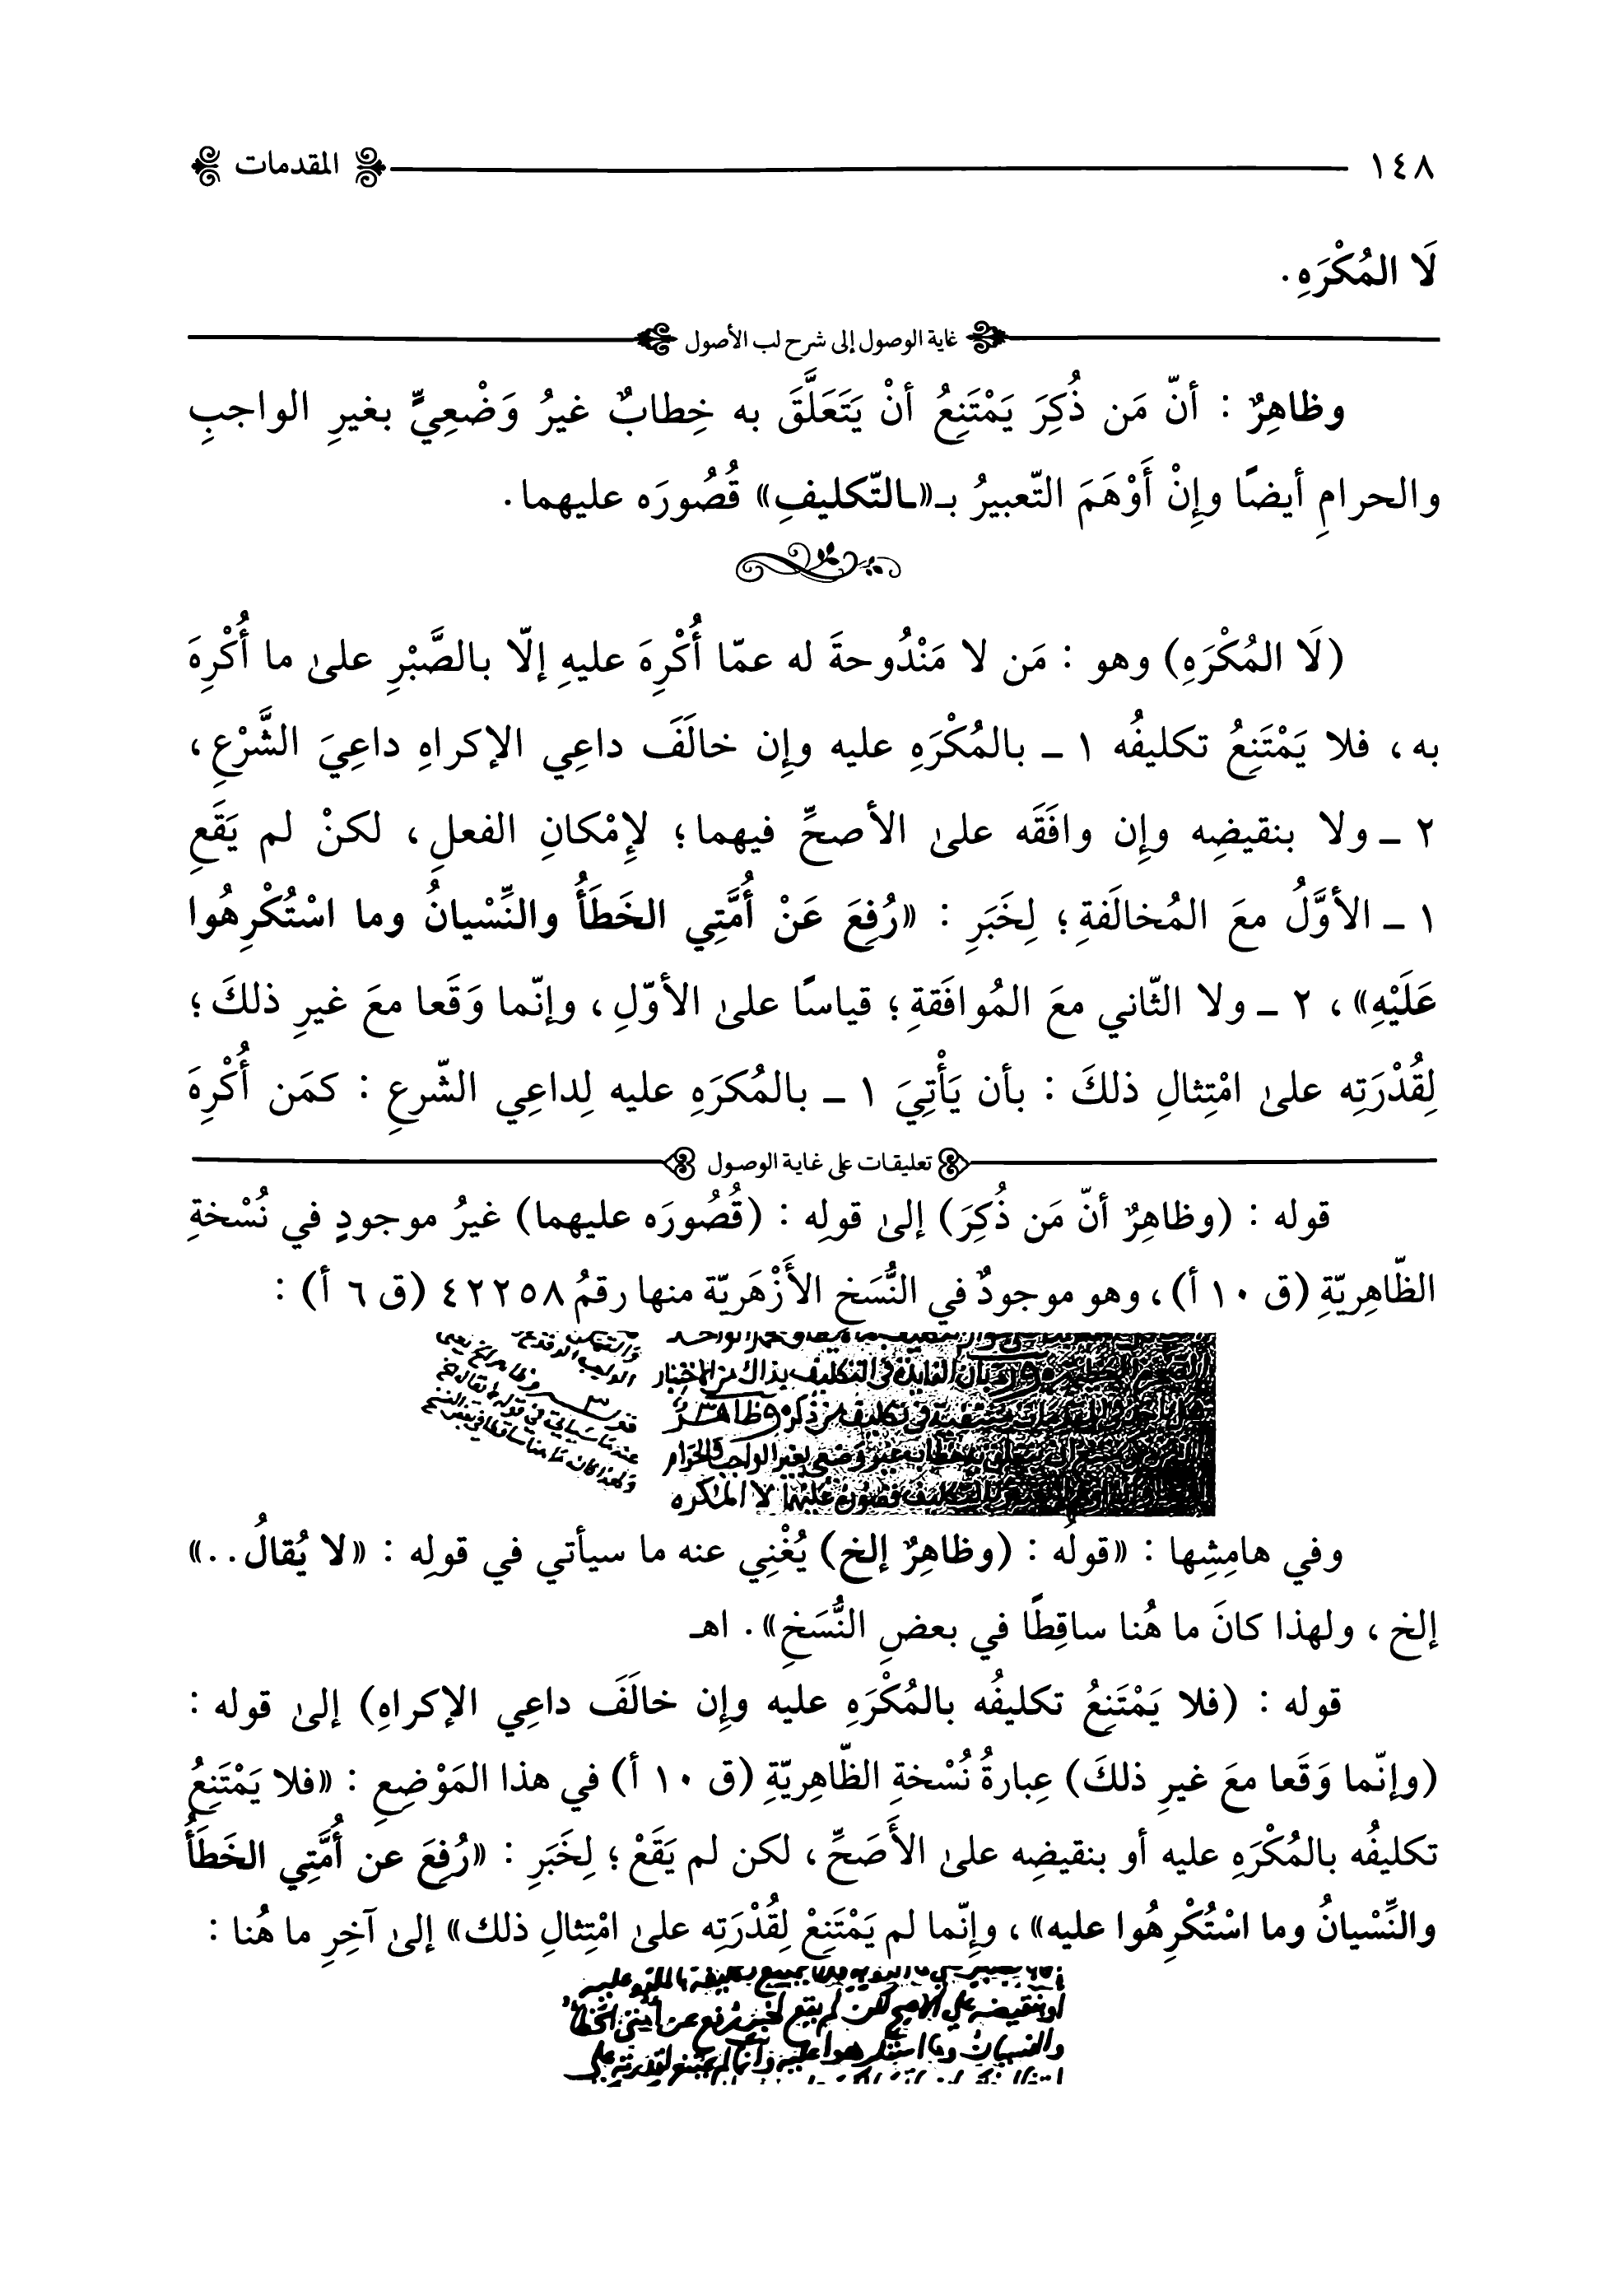 ١٤٨ المقدمات
لَا المُكْرَهِ.
غاية الوصول إلى شرح لب الأصول
وظاهِرٌ : أنّ مَن ذُكِرَ يَمْتَنِعُ أنْ يَتَعَلَّقَ به خِطابٌ غيرُ وَضْعِيٍّ بغيرِ الواجبِ
والحرامِ أيضًا وإِنْ أَوْهَمَ التّعبيرُ بـ«ـالتّكليفِ» قُصُورَه عليهما.
(لَا المُكْرَهِ) وهو : مَن لا مَنْدُوحةَ له عمّا أُكْرِهَ عليهِ إلّا بالصَّبْرِ علىٰ ما أُكْرِهَ
به، فلا يَمْتَنِعُ تكليفُه ١ ـ بالمُكْرَهِ عليه وإِن خالَفَ داعِي الإكراهِ داعِيَ الشَّرْعِ،
٢ ـ ولا بنقيضِه وإِن وافَقَه علىٰ الأصحِّ فيهما؛ لإِمْكانِ الفعلِ، لكنْ لم يَقَعِ
١ ـ الأوَّلُ معَ المُخالَفةِ؛ لِخَبَرِ : «رُفِعَ عَنْ أُمَّتِي الخَطَأُ والنِّسْيانُ وما اسْتُكْرِهُوا
عَلَيْهِ»، ٢ ـ ولا الثّاني معَ المُوافَقةِ؛ قياسًا علىٰ الأوّلِ، وإنّما وَقَعا معَ غيرِ ذلكَ؛
لِقُدْرَتِه علىٰ امْتِثالِ ذلكَ : بأن يَأْتِيَ ١ ـ بالمُكرَهِ عليه لِداعِي الشّرعِ : كمَن أُكْرِهَ
تعليقات على غاية الوصول
قوله : (وظاهِرٌ أنّ مَن ذُكِرَ) إلىٰ قولِه : (قُصُورَه عليهما) غيرُ موجودٍ في نُسْخةِ
الظّاهِريّةِ (ق ١٠ أ)، وهو موجودٌ في النُّسَخ الأَزْهَريّة منها رقمُ ٤٢٢٥٨ (ق ٦ أ) :
وفي هامِشِها : «قولُه : (وظاهِرٌ إلخ) يُغْنِي عنه ما سيأتي في قولِه : «لا يُقالُ..»
إلخ، ولهذا كانَ ما هُنا ساقِطًا في بعضِ النُّسَخِ». اهـ
قوله : (فلا يَمْتَنِعُ تكليفُه بالمُكْرَهِ عليه وإِن خالَفَ داعِي الإكراهِ) إلىٰ قوله :
(وإنّما وَقَعا معَ غيرِ ذلكَ) عِبارةُ نُسْخةِ الظّاهِريّةِ (ق ١٠ أ) في هذا المَوْضِعِ : «فلا يَمْتَنِعُ
تكليفُه بالمُكْرَهِ عليه أو بنقيضِه علىٰ الأَصَحِّ، لكن لم يَقَعْ؛ لِخَبَرِ : «رُفِعَ عن أُمَّتِي الخَطَأُ
والنِّسْيانُ وما اسْتُكْرِهُوا عليه»، وإِنّما لم يَمْتَنِعْ لِقُدْرَتِه علىٰ امْتِثالِ ذلك» إلىٰ آخِرِ ما هُنا :
او بنقيضه على الاصح لكن لم يقع لخبر رفع عن امتي الخطأ
والنسيان وما استكرهوا عليه وانما لم يمتنع لقدرته على